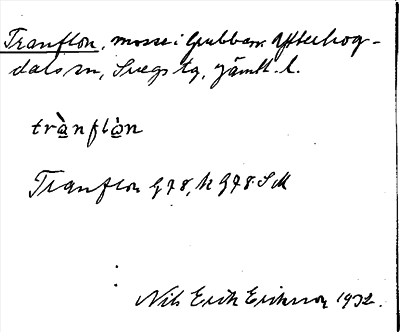 Tranflon, mosse i Grubban Ytterhog-
dals sn, Svegs tg, Jämtl. l.
trànflòn
Tranflon G 78, k G 78. SM
Nils Erik Eriksson 1932.